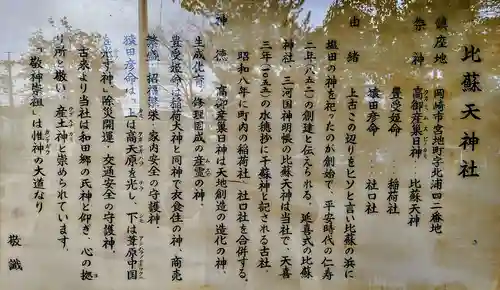 比蘇天神社
鎮座地　岡崎市宮地町字北浦四二番地
祭神　高御産巣日神　比蘇天神
豊受姫命　稲荷社
猿田彦命　社口社
由緒　上古この辺りをヒソと言い比蘇の浜に
塩田の神を祀ったのが創始で、平安時代の仁寿
二年（八五二）の創建と伝えられる、延喜式の比蘇
神社、三河国神明帳の比蘇天神は当社で、天喜
三年（一〇五五）の水穂抄に千蘇神と記される古社、
昭和八年に町内の稲荷社、社口社を合併する。
神徳　高御産巣日神は天地創造の造化の神、
生成化育、修理固成の産霊の神、
豊受姫命は稲荷大神と同神で衣食住の神、商売
繁盛、招福繁栄、家内安全の守護神、
猿田彦命は、上は高天原を光し、下は葦原中国
を光す神」除災開運、交通安全の守護神、
古来より当社は和田郷の氏神と仰ぎ、心の拠
り所と敬い、産土神と崇められています。
「敬神崇祖」は惟神の大道なり
敬識